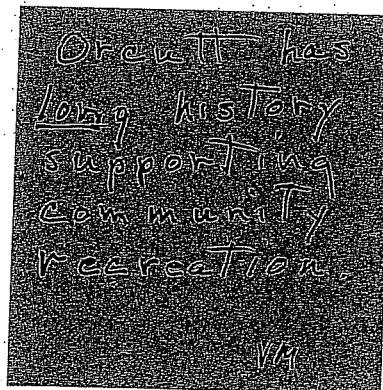 Orcutt has
long history
supporting
community
recreation.
VM